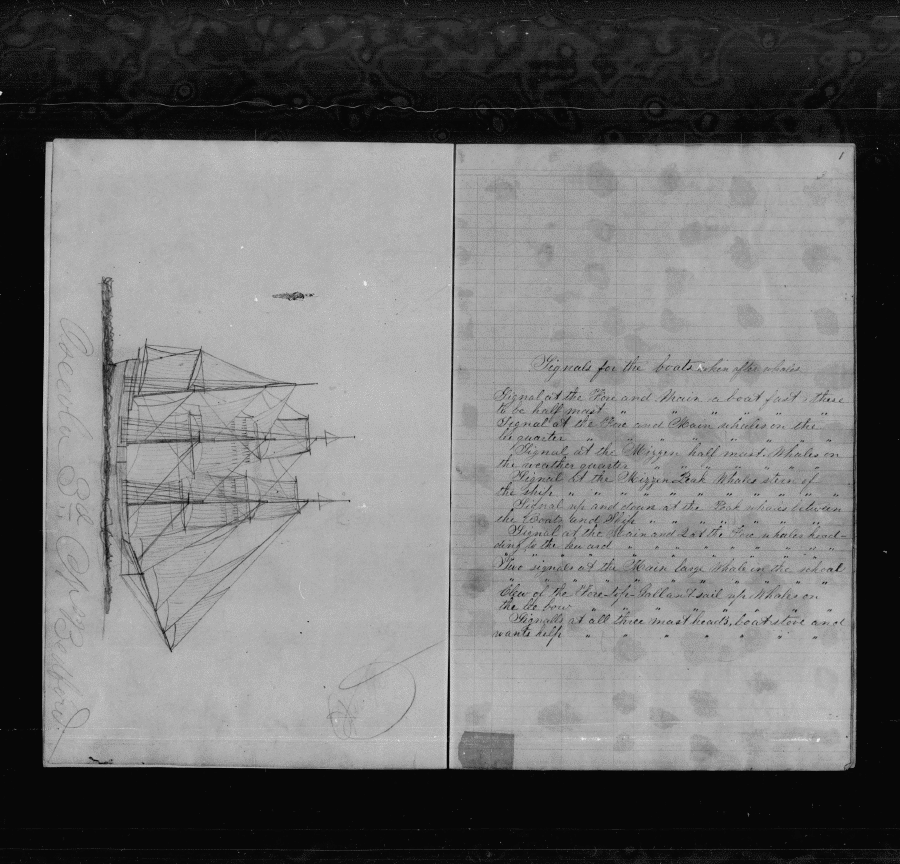 Ocean 3d of New Bedford
1
Signals for the boats when after whales
Signal at the Fore and Main a boat fast & these
to be half mast " " " " " "
Signal at the Fore and Main whales on the
lee quarter " " " " " " "
Signal at the Mizzen half mast. Whales on
the weather quarter " " " " " "
Signal at the Mizzen Peak Whales stern of
the ship " " " " " " " "
Signal up and down at the Peak whales between
the Boats and Ship " " " " " "
Signal at the Main and 2 at the Fore whales head-
ding to the leward " " " " " "
Two signals at the Main large Whale in the school
" " " " " " " " "
Clew of the Fore-top-Gallant sail up Whales on
the lee bow " " " " " "
Signalls at all three mast heads, boat stove and
wants help " " " " " " "